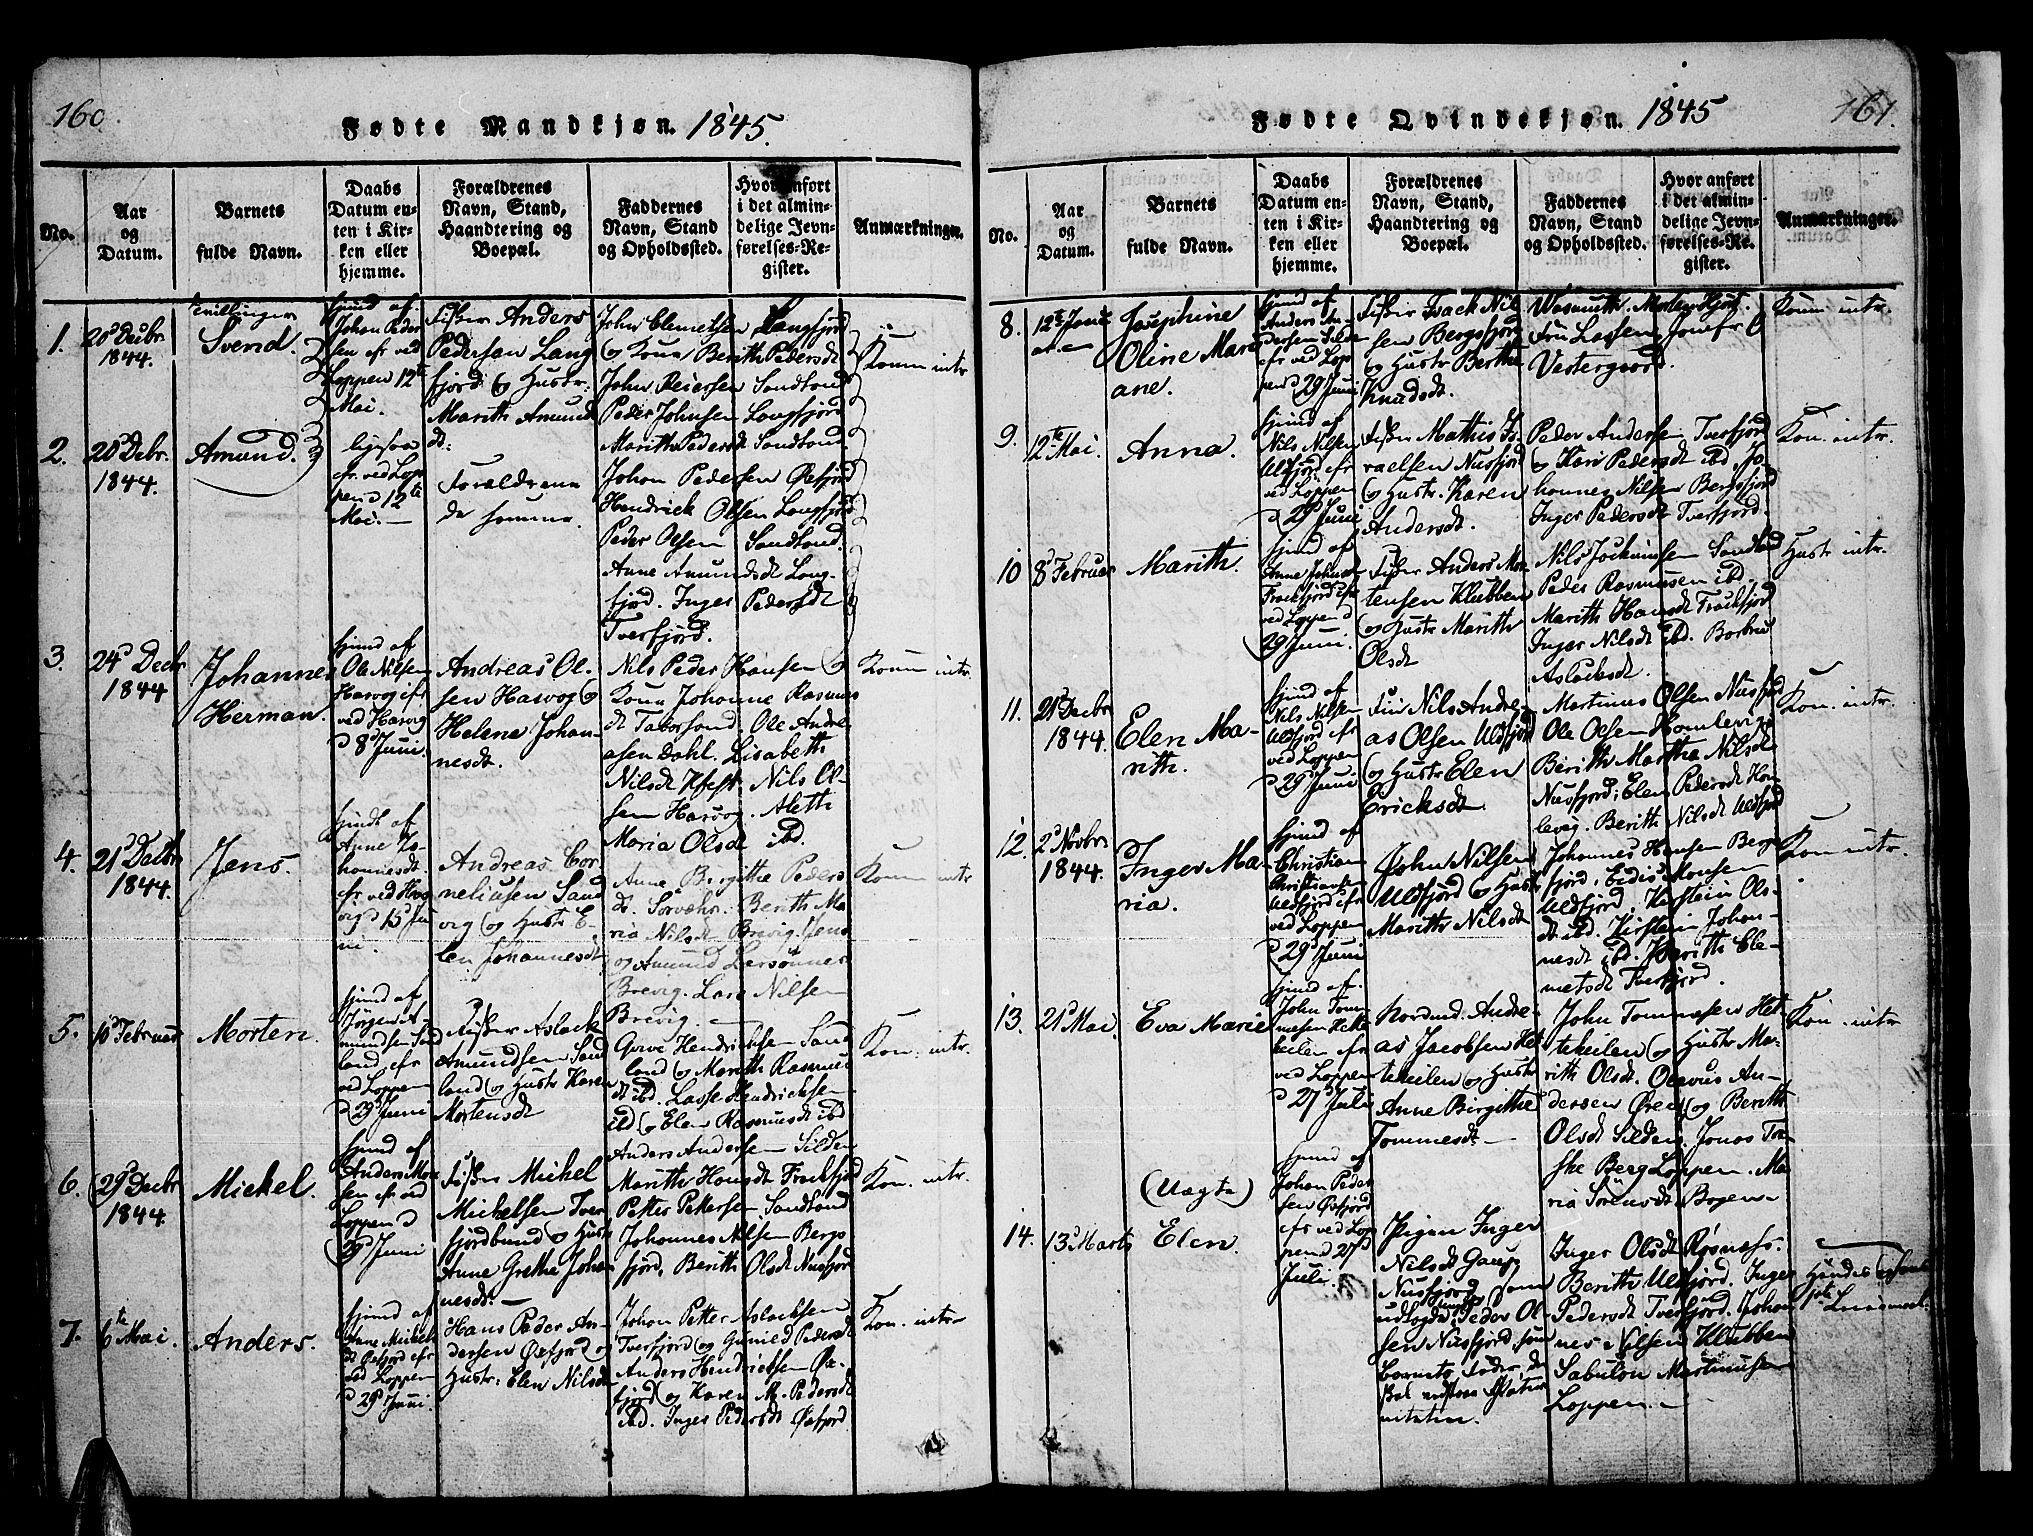 160.
Fødte Mandkjøn. 1845.
No.
Aar
og
Datum.
Barnets
fulde Navn.
Daabs
Datum en-
ten i Kir-
ken eller
hjemme.
Forældrenes
Navn, Stand,
Haandtering og
Boepæl.
Faddernes
Navn, Stand
og Opholdssted.
Hvor anført
i det almin-
delige Jevn-
førelses-Re-
gister.
Anmærkninger.
1.
20 Decbr
1844.
Tvillinger
Svend.
hjemd af
Johan Peder
sen efr ved
Loppen 12te
Mai.
Fisker Anders
Pedersen Lang
fjord og Hustr.
Marith Amund
dt.
John Clemetsen Langfjord
og Kona Berith Pedersdt
John Reiersen Sandland
Peder Johnsen Langfjord
Marith Pedersdt Sandland
Konn intr
2.
20 Debr.
1844.
Amund.
ligesaa
efr. ved Lop
pen d 12te
Mai.
Forældrene
de samme.
Johan Pedersen Øxfjord
Hendrick Olsen Langfjord
Peder Olsen Sandland.
Anne Amundsdt Lang-
fjord. Inger Pedersdt
Tverfjord.
3.
24d Decbr
1844
Johannes
Herman.
hjemd af
Ole Nilsen
Hasvog efr
ved Hasvig
d 8d Juni.
Andreas Ol-
sen Hasvog og
Helene Johan-
nesdt.
Nils Peder Hansen og
Kona Johanne Rasmus
dt Taborsand. Ole Andre-
asen Dahl. Lisabeth
Nilsdt Nils Ol-
sen Hasvog. Aleth
Maria Olsdt ibd.
Konn intr.
4.
21d Decbr
1844.
Jens.
hjemdt af
Anne Jo-
hannesdt.
efr. ved Has
vig d 15 Ju
ni.
Andreas Cor-
neliusen Sand
vig og Hustr E-
len Johannesdt
Anne Bergithe Peders
dt. Sørvær. Berith Ma
ria Nilsdt Brevig. Jens
og Amund Larsønner
Brevig. Lars Nilsen
Brevig.
Konn intr
5.
10 Februar
Morten.
hjemd af
Jørgen A-
mundsen Sand
land efr
ved Loppen
d 29d Juni
Fisker Aslack
Amundsen Sand
land og Hustr Karen
Mortensdt
Hendricksen Sand
land og Marith Rasmus
dt ibd. Lasse Hendricksen
ibd og Elen Rasmusdt ibd
Anders Andersen Silden
Kon. intr.
6.
29d Decbr
1844.
Mickel.
hjemd af
Anders Mor
sen efr ved
Loppen d
29d Juni
Fisker Mickel
Mickelsen Tver
fjordbund og Hustr
Anne Grethe Johan
nesdt.
Marith Hansdt Frackfjord
Petter Pettersen Sandland
Johannes Nilsen Bergs
fjord, Berith Olsdt Nusfjord
Kon. intr.
7.
6te Mai
Anders.
hjemd af
Anne Mickels
dt Øxfjord efr
ved Loppen
d 29d Juni.
Hans Peder An-
dersen Øxfjord og
Hustr. Elen Nilsdt
Johan Petter Aslacksen
Tverfjord og Gunild Pedersdt
Anders Hendricksen Øx-
fjord og Karen M. Pedersdt
ibd. Inger Pedersdt Øxfjord
Kon. intr.
161.
Fødte Qvindekjøn. 1845
No.
Aar
og
Datum.
Barnets
fulde Navn.
Daabs
Datum en-
ten i Kir-
ken eller
hjemme.
Forældrenes
Navn, Stand,
Haandtering og
Boepæl.
Faddernes
Navn, Stand
og Opholdssted.
Hvor anført
i det almin-
delige Jevn-
førelses-Re-
gister.
Anmærkninger.
8.
12te Janu
ar.
Josephine
Oline Mari
ane.
hjemd af
Anders An-
dersen Silde
efr ved Lop
pen d 29 Juni
Fisker Isack Nil
sen Bergsfjord
og Hustr Berthe
Knudsdt.
Wasmuth.
Fru Lassen, Jomfr
Vestergaard.
Konn intr.
9.
12te Mai.
Anna.
hjemd af
Nils Nilsen
Ulsfjord efr
ved Loppen
d 29 Juni
Fisker Mathis Is-
raelsen Nusfjord
og Hustr. Karen
Andersdt.
Peder Andersen Tverfjord
og Kari Pedersdt ibd, Jo-
hannes Nilsen Bergsfjord
Inger Pedersdt Tverfjord.
Kon. intr.
10
8d Februar
Marith.
hjemd af
Anne Johns
Frackfjord efr
ved Loppen d
29 Juni.
Fisker Anders Mor-
tensen Klubben
og Hustr Marith
Olsdt
Nils Jockumsen Sandland
Peder Rasmusen ibd.
Marith Hansdt Frackfjord
Inger Nilsdt ibd. Barbru
Aslacksdt.
Hustr intr.
11.
21d Decbr
1844.
Elen Ma-
rith.
hjemd af
Nils Nilsen
Ulsfjord efr
ved Loppen
d 29d Juni
Fin Nils Andre-
as Olsen Ulsfjord
og Hustr Elen
Ericksdt
Martinus Olsen Nusfjord
Ole Olsen Komlevig
Berith Martha Nilsdt
Nusfjord; Elen Pedersdt Kom
levig. Berith Nilsdt Ulsfjord
Kon. intr.
12.
2d Novbr
1844.
Inger Ma-
ria.
hjemd af
Christian
Christiansen
Ulsfjord efr
ved Loppen
d 29d Juni
John Nilsen
Ulsfjord og Hustr
Marith Nilsdt
Johannes Hansen Bergs
fjord, Monsen
Ulsfjord, Kirstein Ols-
dt ibd. Kirstein Johan-
nesdt ibd. Berith Cle-
metsdt Tverfjord.
Kon intr.
13.
21d Mai
Eva Marie
hjemd af.
John Tom
mesen Hette
keilen efr
ved Loppen
d 27d Juli
Nordmd. Andre-
as Jacobsen Het
tekeilen og Hustr
Anne Birgithe
Tommesdt.
John Tommesen Het-
tekeilen og Hustr Ma-
rith Olsdt. Olavus An-
dersen Øren og Berith
Olsdt Silden. Jonas
Berg Loppen. Ma-
ria Sørensdt Bogen
Kon. intr
14.
13d Marts
(Uægte)
Elen.
hjemd af
Johan Peder
sen Øxfjord
efr ved Lop
pen d 27d
Juli.
Pigen Inger
Nilsdt Gaup
Nusfjord som
udlagde Peder Ol-
sen Nusfjord som
Barnets fader
Inger Olsdt Røsnæss.
Berith Ulsfjord. Inger
Pedersdt Tverfjord. Johan
nes Nilsen Klubben
Sabulon Martinusen
Loppen.